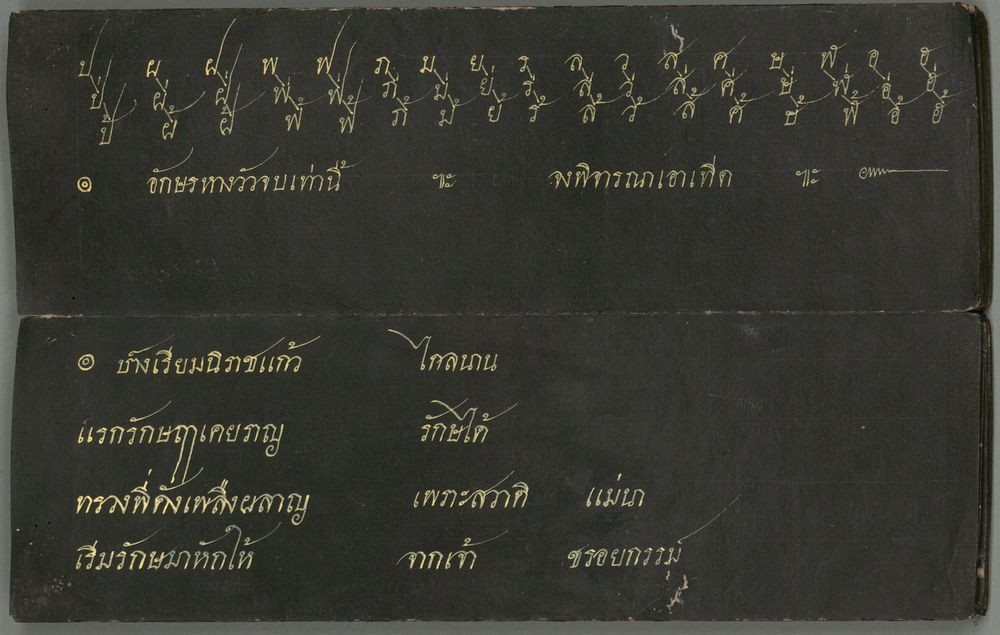 ป ผ ฝ พ ฟ ภ ม ย ร ล ว ส ศ ษ ฬ อ ฮ
ปี่ ผี่ ฝี่ พี่ ฟี่ ภี่ มี่ ยี่ รี่ ลี่ วี่ สี่ ศี่ ษี่ ฬี่ อี่ ฮี่
ปี้ ผี้ ฝี้ พี้ ฟี้ ภี้ มี้ ยี้ รี้ ลี้ วี้ สี้ ศี้ ษี้ ฬี้ อี้ ฮี้
๏ อักษรหางวัวจบเท่านี้ ฯะ จงพิจารณาเอาเทิด ฯะ
๏ ปางเรียมนิราชแก้ว ไกลนาน
แรกรักษฤๅเคยราญ รักษได้
ทรวงพี่ดั่งเพลิงผลาญ เพราะสวาดิ แม่นา
เริมรักษมาหักให้ จากเจ้า ชรอยกรรม์